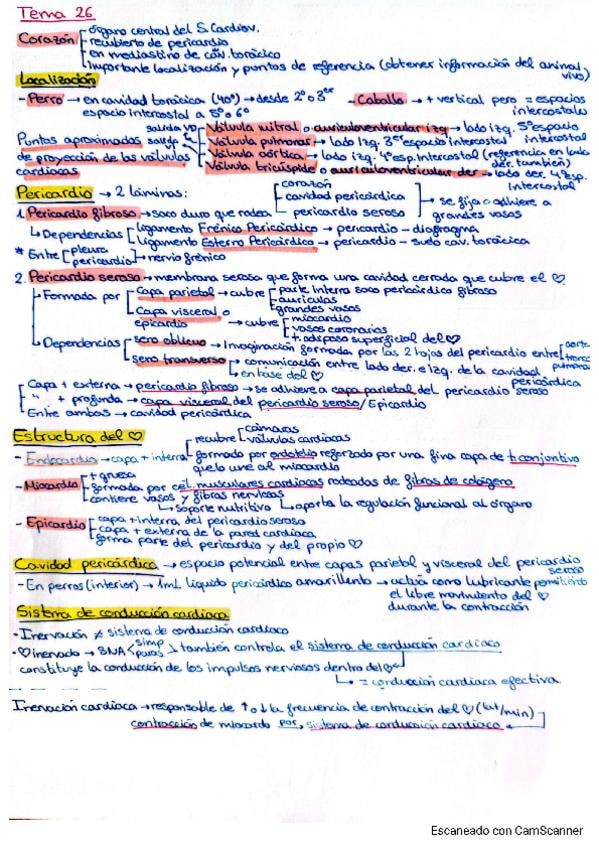 Tema 26
Corazón órgano central del S. Cardiov.
recubierto de pericardio
en mediastino de cav. torácica
importante localización y puntos de referencia (obtener información del animal vivo)
Localización
- Perro → en cavidad torácica (40º) → desde 2º o 3er espacio intercostal a 5º o 6º
- Caballo → + vertical pero = espacios intercostales
Puntos aproximados de proyección de las válvulas cardiacas
Válvula mitral o auriculoventricular izq → lado izq. 5º espacio intercostal
Válvula pulmonar → lado izq. 3er espacio intercostal
Válvula aórtica → lado izq. 4º esp. Intercostal (referencia en lado der. también)
Válvula tricúspide o auriculoventricular der → lado der. 4º esp. Intercostal
Pericardio → 2 láminas:
1. Pericardio fibroso → saco duro que rodea
corazón
cavidad pericárdica
pericardio seroso
→ se fija o adhiere a grandes vasos
↳ Dependencias
ligamento Frénico Pericárdico → pericardio - diafragma
ligamento Esterno Pericárdico → pericardio - suelo cav. torácica
* Entre pleura pericardio → nervio frénico
2. Pericardio seroso → membrana serosa que forma una cavidad cerrada que cubre el ♡
↳ Formada por
Capa parietal → cubre
parte interna saco pericárdico fibroso
aurículas
grandes vasos
Capa visceral o epicardio → cubre
miocardio
vasos coronarios
t. adiposo superficial del ♡
↳ Dependencias
seno oblicuo → Invaginación formada por las 2 hojas del pericardio entre aorta tronco pulmonar
seno transverso → comunicación entre lado der. e izq. de la cavidad pericárdica
↳ en base del ♡
Capa + externa → pericardio fibroso → se adhiere a capa parietal del pericardio seroso
" + profunda → capa visceral del pericardio seroso / Epicardio
Entre ambos → cavidad pericárdica
Estructura del ♡
- Endocardio → capa + interna
recubre cámaras válvulas cardiacas
formado por endotelio reforzado por una fina capa de t. conjuntivo que lo une al miocardio
- Miocardio
+ grueso
formada por cél. musculares cardiacas rodeadas de fibras de colágeno
contiene vasos y fibras nerviosas
↳ soporte nutritivo ↳ aporta la regulación funcional al órgano
- Epicardio
capa + interna del pericardio seroso
capa + externa de la pared cardiaca
forma parte del pericardio y del propio ♡
Cavidad pericárdica → espacio potencial entre capas parietal y visceral del pericardio seroso
- En perros (interior) → 1mL líquido pericárdico amarillento → actúa como lubricante permitiendo el libre movimiento del ♡ durante la contracción
Sistema de conducción cardiaco
- Inervación ≠ sistema de conducción cardiaco
- ♡ inervado → SNA simp paras → también controla el sistema de conducción cardiaco
constituye la conducción de los impulsos nerviosos dentro del ♡
↳ = conducción cardiaca efectiva.
Inervación cardiaca → responsable de ↑ o ↓ la frecuencia de contracción del ♡ (lat/min)
contracción de miocardio por, sistema de conducción cardiaco
Escaneado con CamScanner